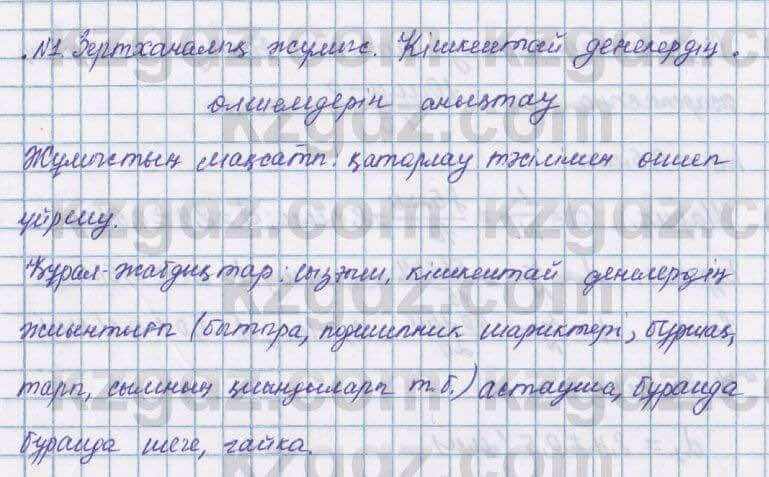 №1 Зертханалық жұмыс. Кішкентай денелердің
өлшемдерін анықтау
Жұмыстың мақсаты: қатарлау тәсілімен өлшеп
үйрену.
Құрал-жабдықтар: сызғыш, кішкентай денелердің
жиынтығы (бытыра, подшипник шариктері, бұршақ,
тары, сымның қиындылары т.б.) астауша, бұранда
бұранда шеге, гайка.
kzgdz.com